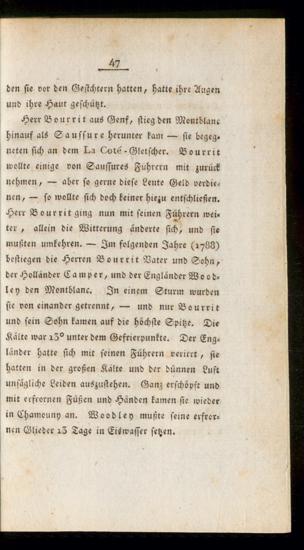 47
den sie vor den Gesichtern hatten, hatte ihre Augen
und ihre Haut geschützt.
Herr Bourrit aus Genf, stieg den Montblanc
hinauf als Saussure herunter kam — sie begeg-
neten sich an dem La Coté-Gletscher. Bourrit
wollte einige von Saussures Führern mit zurück
nehmen, — aber so gerne diese Leute Geld verdie-
nen, — so wollte sich doch keiner hiezu entschließen.
Herr Bourrit ging nun mit seinen Führern wei-
ter, allein die Witterung änderte sich, und sie
mußten umkehren. — Im folgenden Jahre (1788)
bestiegen die Herren Bourrit Vater und Sohn,
der Holländer Camper, und der Engländer Wood-
ley den Montblanc. In einem Sturm wurden
sie von einander getrennt, — und nur Bourrit
und sein Sohn kamen auf die höchste Spitze. Die
Kälte war 13° unter dem Gefrierpunkte. Der Eng-
länder hatte sich mit seinen Führern verirrt, sie
hatten in der großen Kälte und der dünnen Luft
unsägliche Leiden auszustehen. Ganz erschöpft und
mit erfrornen Füßen und Händen kamen sie wieder
in Chamouny an. Woodley mußte seine erfror-
nen Glieder 13 Tage in Eiswasser setzen.